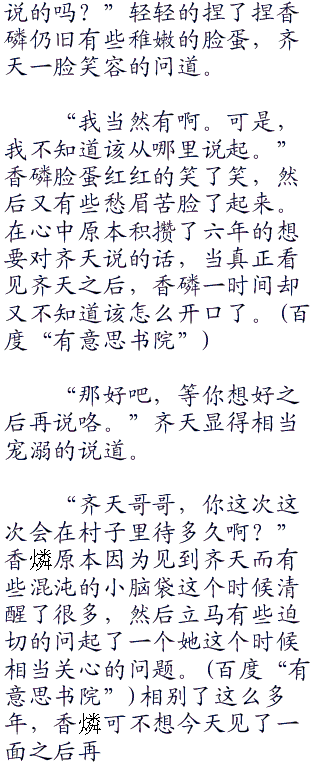 说的吗？”轻轻的捏了捏香
磷仍旧有些稚嫩的脸蛋，齐
天一脸笑容的问道。
“我当然有啊。可是，
我不知道该从哪里说起。”
香磷脸蛋红红的笑了笑，然
后又有些愁眉苦脸了起来。
在心中原本积攒了六年的想
要对齐天说的话，当真正看
见齐天之后，香磷一时间却
又不知道该怎么开口了。(百
度“有意思书院”)
“那好吧，等你想好之
后再说咯。”齐天显得相当
宠溺的说道。
“齐天哥哥，你这次这
次会在村子里待多久啊？”
香燐原本因为见到齐天而有
些混沌的小脑袋这个时候清
醒了很多，然后立马有些迫
切的问起了一个她这个时候
相当关心的问题。(百度“有
意思书院”)相别了这么多
年，香燐可不想今天见了一
面之后再